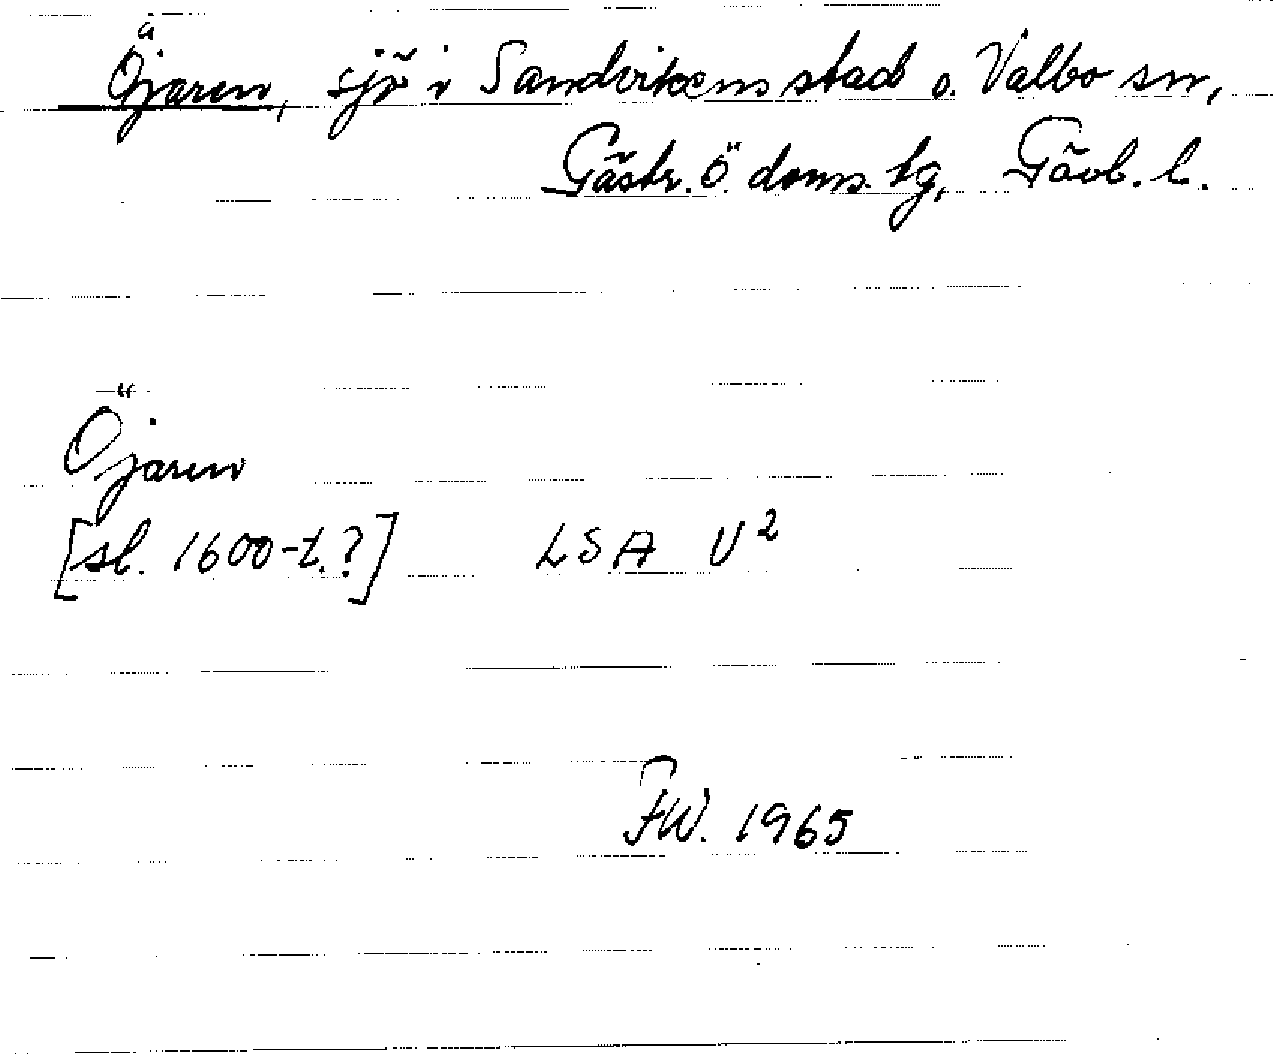 Öjaren, sjö i Sandvikens stad o. Valbo sn,
Gästr. ö. doms. tg, Gävl. l.
Öjaren
[sl. 1600-t.?] LSA U²
FW. 1965